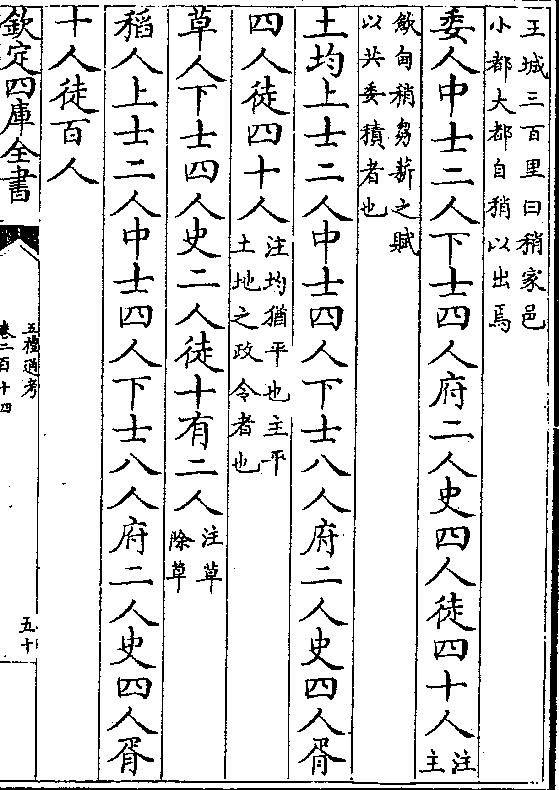 王城三百里曰稍家邑
小都大都自稍以出焉
委人中士二人下士四人府二人史四人徒四十人注
主
斂甸稍芻薪之賦
以共委積者也
土均上士二人中士四人下士八人府二人史四人胥
四人徒四十人注均猶平也主平
土地之政令者也
草人下士四人史二人徒十有二人注草
除草
稻人上士二人中士四人下士八人府二人史四人胥
十人徒百人
欽定四庫全書
五禮通考
卷二百十四
五十